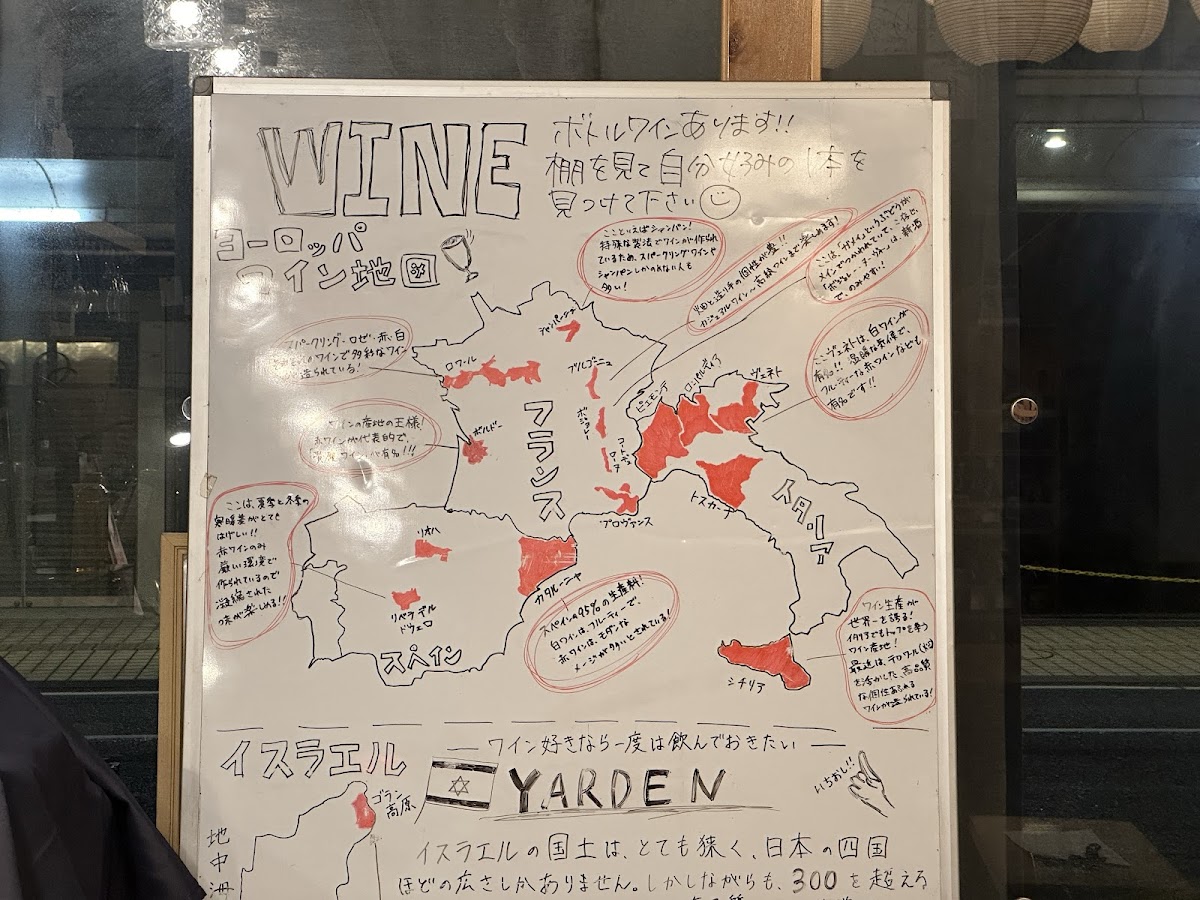 WINE
ボトルワインあります!!
棚を見て自分好みの1本を
見つけて下さい
ヨーロッパ
ワイン地図
ここといえばシャンパン!
特殊な製法でワインが作られ
ているため、スパークリングワインや
シャンパンしかのれない人も
多い!
畑と造り手の個性が豊!!
カジュアルワイン〜高級ワインまで楽しめます!
ここは、「ガメイ」というぶどうが
メインでつかわれていて、
「ボジョレー・ヌーヴォー」は、新酒
で、のみやすい!
スパークリング・ロゼ・赤・白
のワインで多彩なワイン
造られている!
ワインの産地の王様!
赤ワインが代表的で、
ワイン」が有名!!!
ここヴェネトは、白ワインが
有名!! 温暖な気候で、
フルーティーな赤ワインなども
有名です!!
シャンパーニュ
ロワール
ブルゴーニュ
ボルドー
ボジョレー
コート・デュ
ローヌ
プロヴァンス
フランス
ピエモンテ
ロンバルディア
ヴェネト
トスカーナ
イタリア
シチリア
ここは、夏季と冬季の
寒暖差がとても
はげしい!!
赤ワインのみ
厳しい環境で
作られているので
凝縮された
味が楽しめる!!
リオハ
リベラ デル
ドゥエロ
カタルーニャ
スペイン
スペインの95%の生産料!
白ワインは、フルーティーで、
赤ワインは、モダンな
メージが多いとされている!
ワイン生産が
世界一を誇る!
イタリアでもトップを争う
ワイン産地!
最近は、テロワール
を活かした、高品質
な個性あふれる
ワインが造られている!
イスラエル
ワイン好きなら一度は飲んでおきたい
YARDEN
いちおし!!
ゴラン
高原
地中海
イスラエルの国土は、とても狭く、日本の四国
ほどの広さしかありません。しかしながらも、300を超える